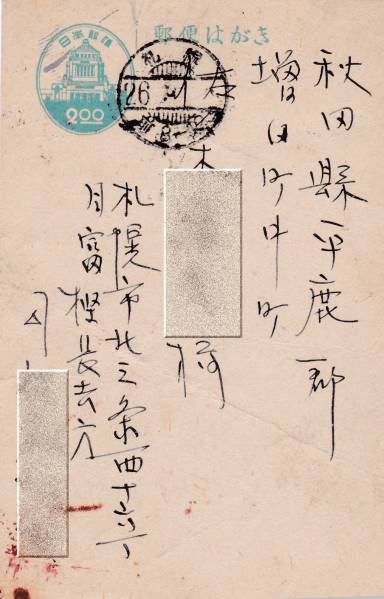 郵便はがき
日本郵便
2.00
札幌
26
秋田縣平鹿郡
増田町中町
様
札幌市北三条西十六丁
目富樫長吉方